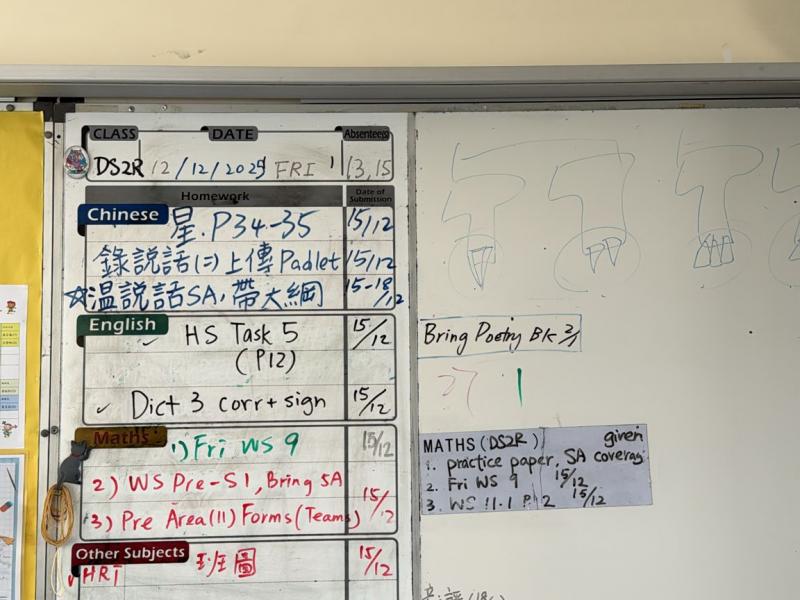 CLASS DATE Absentee(s)
DS2R 12/12/2025 FRI 13,15
Homework Date of Submission
Chinese 星.P34-35 15/12
錄說話(二)上傳Padlet 15/12
☆溫說話SA,帶大綱 15-18/12
English HS Task 5 15/12
(P12)
✓ Dict 3 corr+sign 15/12
Maths 1) Fri WS 9 15/12
2) WS Pre-S1, Bring SA
3) Pre Area(11) Forms(Teams) 15/12
Other Subjects
HRT 班圖 15/12
Bring Poetry BK
MATHS (DS2R) given
1. practice paper, SA coverag
2. Fri WS 9 15/12
3. WS 11.1 2 15/12